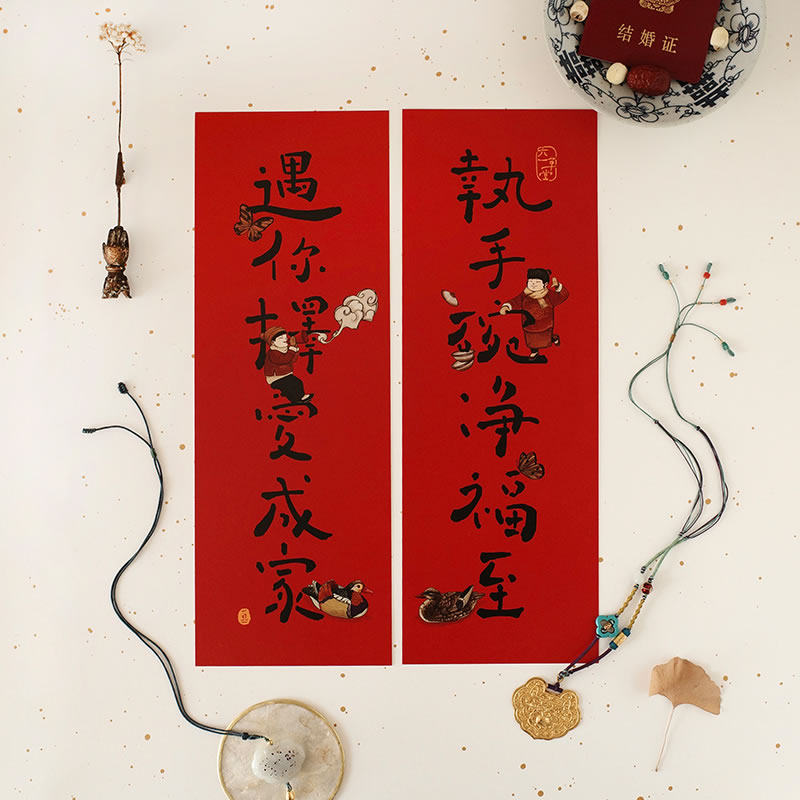 结婚证
執手碗浄福至
遇你擇愛成家